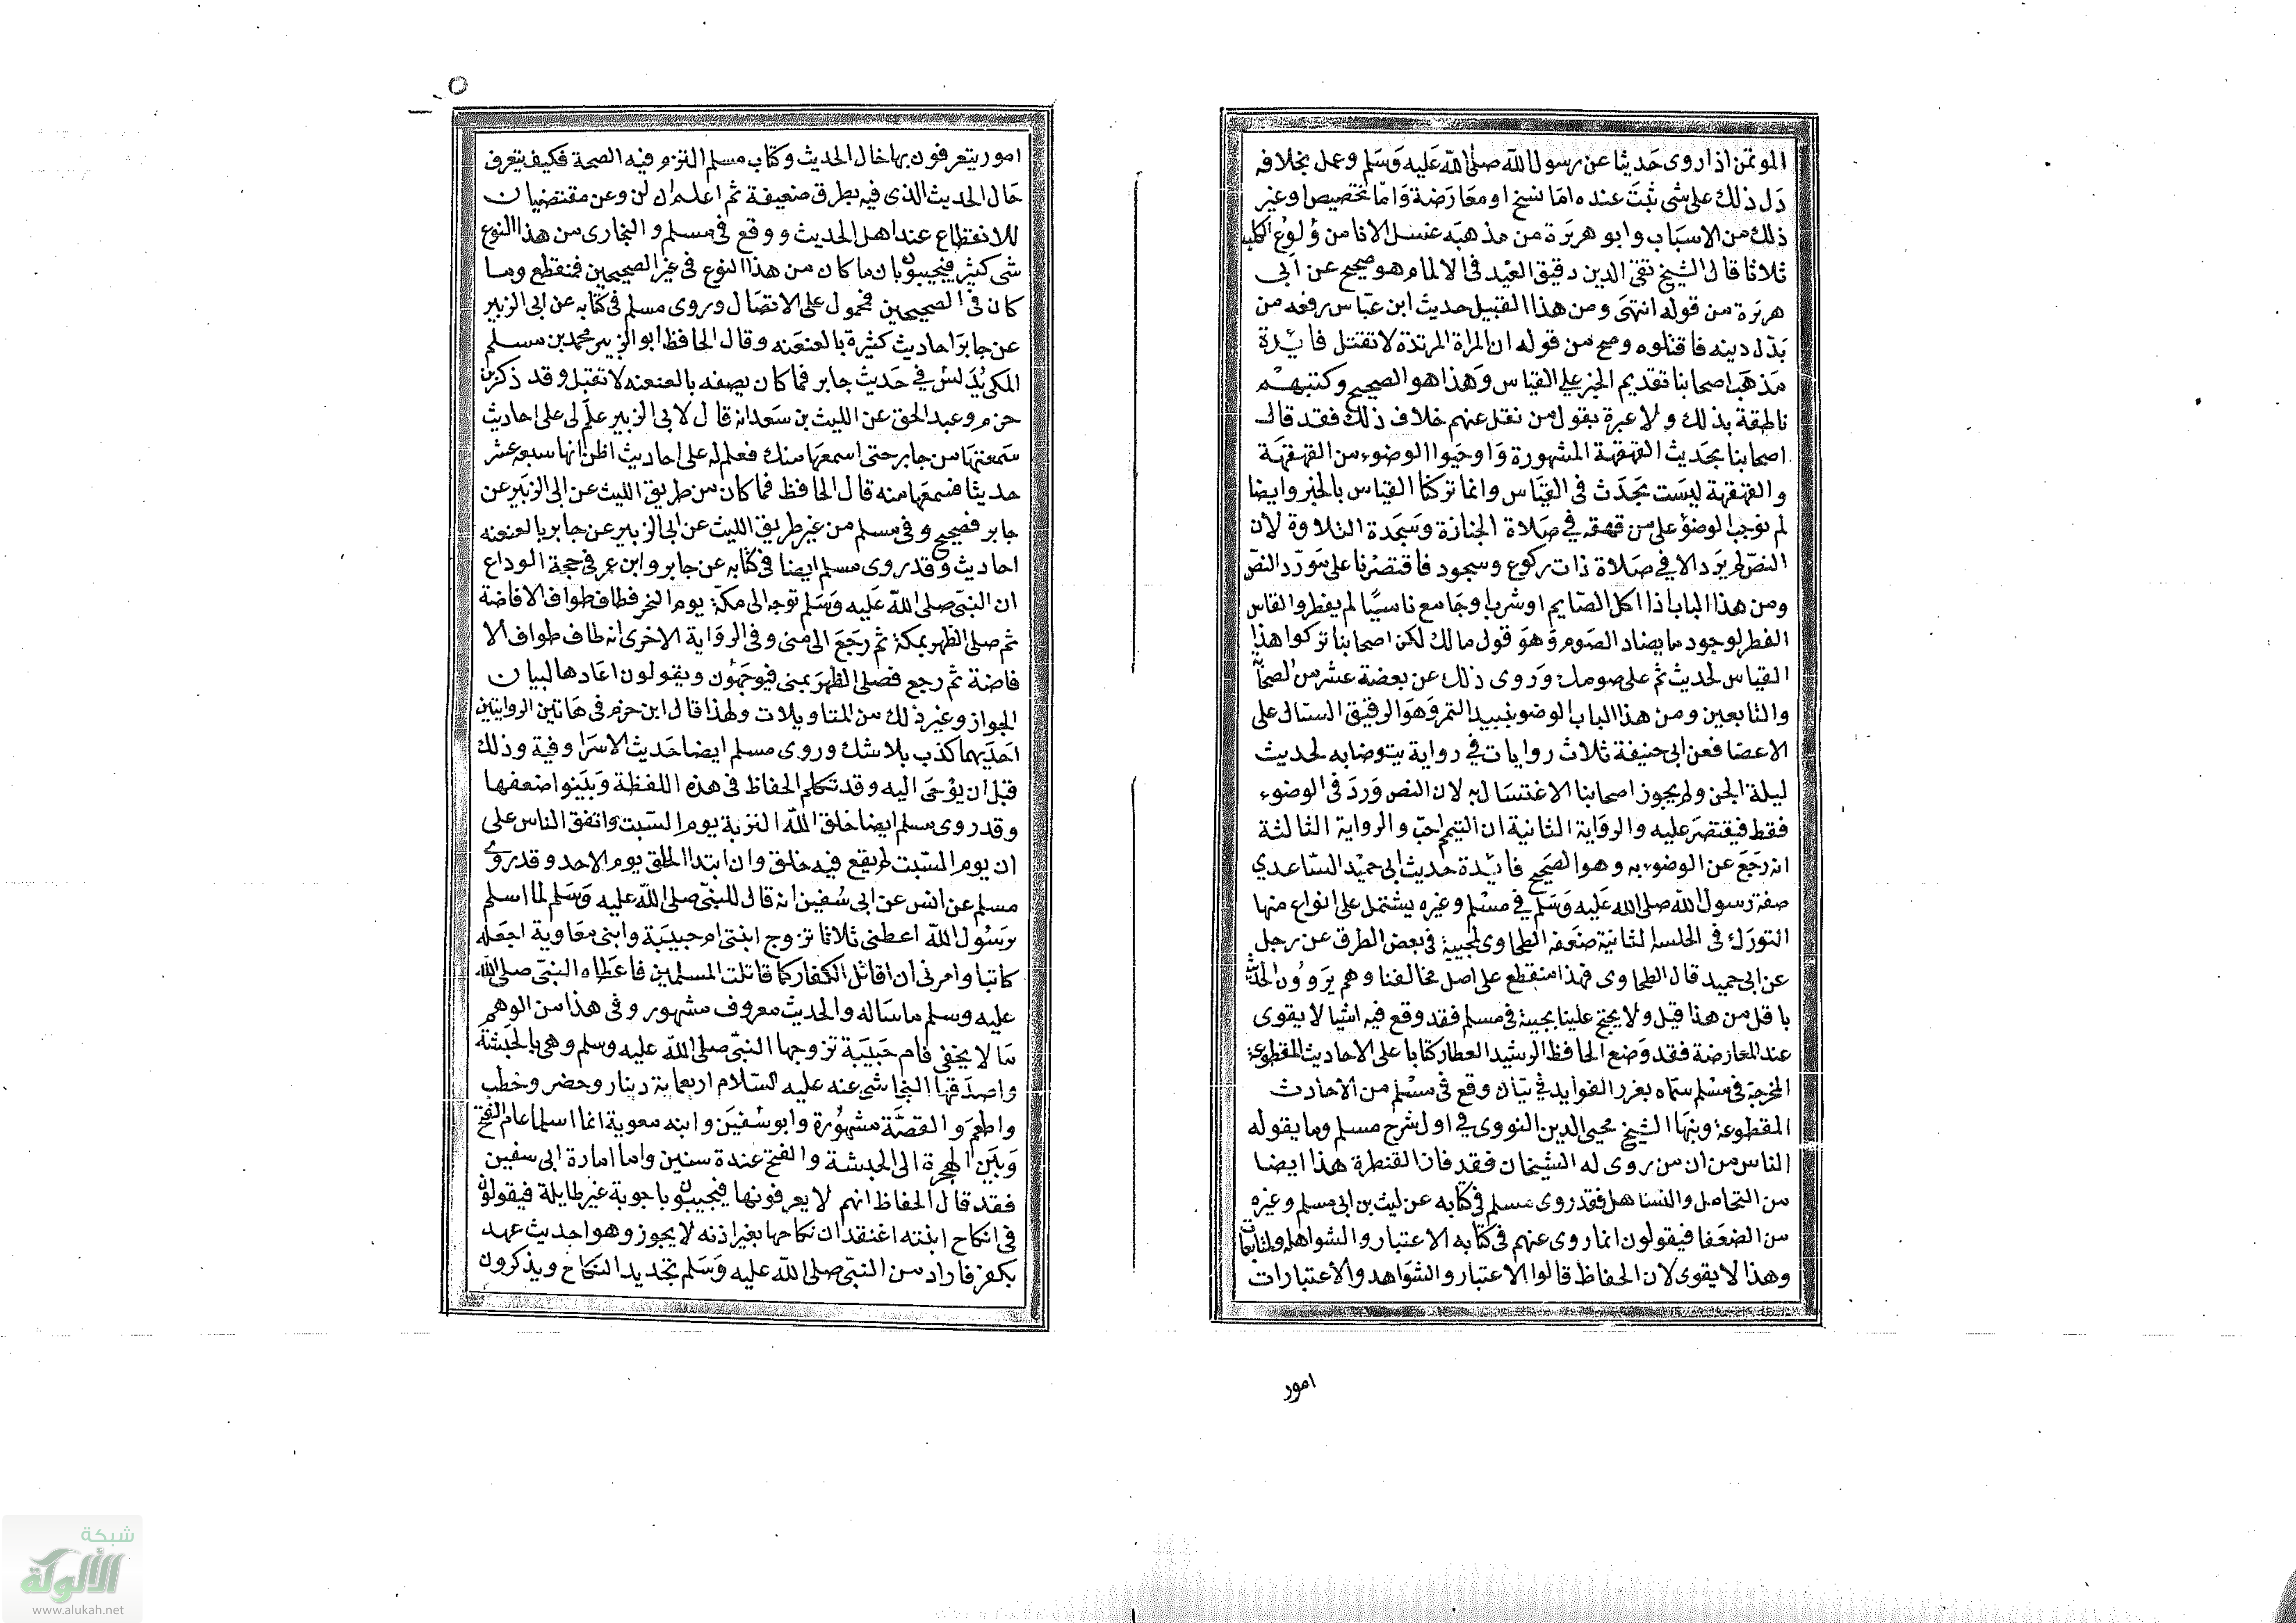 الموتمن اذا روى حديثا عن رسول الله صلى الله عليه وسلم وعمل بخلافه
دل ذلك على شى ثبت عنده اما نسخ او معارضة واما تخصيص او غير
ذلك من الاسباب وابو هريرة من مذهبه غسل الانا من ولوغ الكلب
ثلاثا قال الشيخ تقى الدين دقيق العيد فى الالمام هو صحيح عن ابى
هريرة من قوله انتهى ومن هذا القبيل حديث ابن عباس رفعه من
بدل دينه فاقتلوه وصح من قوله ان المراة المرتدة لا تقتل فايدة
مذهب اصحابنا تقديم الخبر على القياس وهذا هو الصحيح وكتبهم
ناطقة بذلك ولا عبرة بقول من نقل عنهم خلاف ذلك فقد قال
اصحابنا بحديث القهقهة المشهورة واوجبوا الوضوء من القهقهة
والقهقهة ليست بحدث فى القياس وانما تركنا القياس بالخبر وايضا
لم نوجب الوضؤ على من قهقه فى صلاة الجنازة وسجدة التلاوة لان
النص لم يرد الا فى صلاة ذات ركوع وسجود فاقتصرنا على مورد النص
ومن هذا الباب اذا اكل الصايم او شرب او جامع ناسيا لم يفطر والقاس
الفطر لوجود ما يضاد الصوم وهو قول مالك لكن اصحابنا تركوا هذا
القياس لحديث ثم على صومك وروى ذلك عن بعضة عشر من الصحا
والتابعين ومن هذا الباب الوضو بنبيد التمر وهو الرقيق السيال على
الاعضا فعن ابى حنيفة ثلاث روايات فى رواية يتوضا به لحديث
ليلة الجن ولم يجوز اصحابنا الاغتسال به لان النص ورد فى الوضوء
فقط فيقتصر عليه والرواية الثانية ان التيمم احب والرواية الثالثة
انه رجع عن الوضوء به وهو الصحيح فايدة حديث ابى حميد الساعدي
صفة رسول الله صلى الله عليه وسلم فى مسلم وغيره يشتمل على انواع منها
التورك فى الجلسة الثانية ضعفه الطحاوى لمجيئه فى بعض الطرق عن رجل
عن ابى حميد قال الطحاوى فهذا منقطع على اصل مخالفنا وهم يروون الحديث
باقل من هذا قيل ولا يحتج علينا بمجيئه فى مسلم فقد وقع فيه اشيا لا يقوى
عند المعارضة فقد وضع الحافظ الرشيد العطار كتابا على الاحاديث المقطوعة
المخرجة فى مسلم سماه بغرر الفوايد فى بيان وقع فى مسلم من الأحادث
المقطوعة وبينها الشيخ محيى الدين النووى فى اول شرح مسلم وما يقوله
الناس من ان من روى له الشيخان فقد فاز القنطرة هذا ايضا
من التحامل والتساهل فقد روى مسلم فى كتابه عن ليث بن ابى مسلم وغيره
من الضعفا فيقولون انما روى عنهم فى كتابه الاعتبار والشواهد والمتابعات
وهذا لا يقوى لان الحفاظ قالوا الاعتبار والشواهد والاعتبارات
امور
٥
امور يتعرفون بها حال الحديث وكتاب مسلم التزم فيه الصحة فكيف يتعرف
حال الحديث الذى فيه بطرق ضعيفة ثم اعلم ان لن وعن مقتضيان
للانقطاع عند اهل الحديث ووقع فى مسلم والبخارى من هذا النوع
شى كثير فيجيبون بان ما كان من هذا النوع فى غير الصحيحين فمنقطع وما
كان فى الصحيحين فمحمول على الاتصال وروى مسلم فى كتابه عن ابى الزبير
عن جابر احاديث كثيرة بالعنعنه وقال الحافظ ابو الزبير محمد بن مسلم
المكى يدلس فى حديث جابر فما كان بصفه بالعنعنه لا تقبل وقد ذكر بن
حزم وعبد الحق عن الليث بن سعد انه قال لابى الزبير علم لى على احاديث
سمعتها من جابر حتى اسمعها منك فعلم له على احاديث اظن انها سبعه عشر
حديثا فسمعها منه قال الحافظ فما كان من طريق الليث عن ابى الزبير عن
جابر فصحيح وفى مسلم من غير طريق الليث عن ابى الزبير عن جابر بالعنعنه
احاديث وقد روى مسلم ايضا فى كتابه عن جابر وابن عمر فى حجة الوداع
ان النبى صلى الله عليه وسلم توجه الى مكة يوم النحر فطاف طواف الافاضة
ثم صلى الظهر بمكة ثم رجع الى منى وفى الرواية الاخرى انه طاف طواف الا
فاضة ثم رجع فصلى الظهر بمنى فيوجهون ويقولون اعادها لبيان
الجواز وغير ذلك من التاويلات ولهذا قال ابن حزم فى هاتين الروايتين
احديهما كذب بلا شك وروى مسلم ايضا حديث الاسرا وفيه وذلك
قبل ان يوحى اليه وقد تكلم الحفاظ فى هذه اللفظة وبينوا ضعفها
وقد روى مسلم ايضا خلق الله التربة يوم السبت واتفق الناس على
ان يوم السبت لم يقع فيه خلق وان ابتدا الخلق يوم الاحد وقد روى
مسلم عن انس عن ابى سفين انه قال للنبى صلى الله عليه وسلم لما اسلم
يرسول الله اعطنى ثلاثا تزوج ابنتى ام حبيبة وابنى معاوية اجعله
كاتبا وامرنى ان اقاتل الكفار كما قاتلت المسلمين فاعطاه النبى صلى الله
عليه وسلم ما ساله والحديث معروف مشهور وفى هذا من الوهم
ما لا يخفى فام حبيبة تزوجها النبى صلى الله عليه وسلم وهى بالحبشة
واصدقها النجاشى عنه عليه السلام اربعماية دينار وحضر وخطب
واطعم والقصة مشهورة وابو سفين وابنه معوية انما اسلما عام الفتح
وبين الهجرة الى الحبشة والفتح عندة سنين واما امارة ابى سفين
فقد قال الحفاظ انهم لا يعرفونها فيجيبون باجوبة غير طايلة فيقولون
فى انكاح ابنته اعتقد ان نكاحها بغير اذنه لا يجوز وهو حديث عهد
بكفر فاراد من النبى صلى الله عليه وسلم تجديد النكاح ويذكرون
شبكة
الألوكة
www.alukah.net